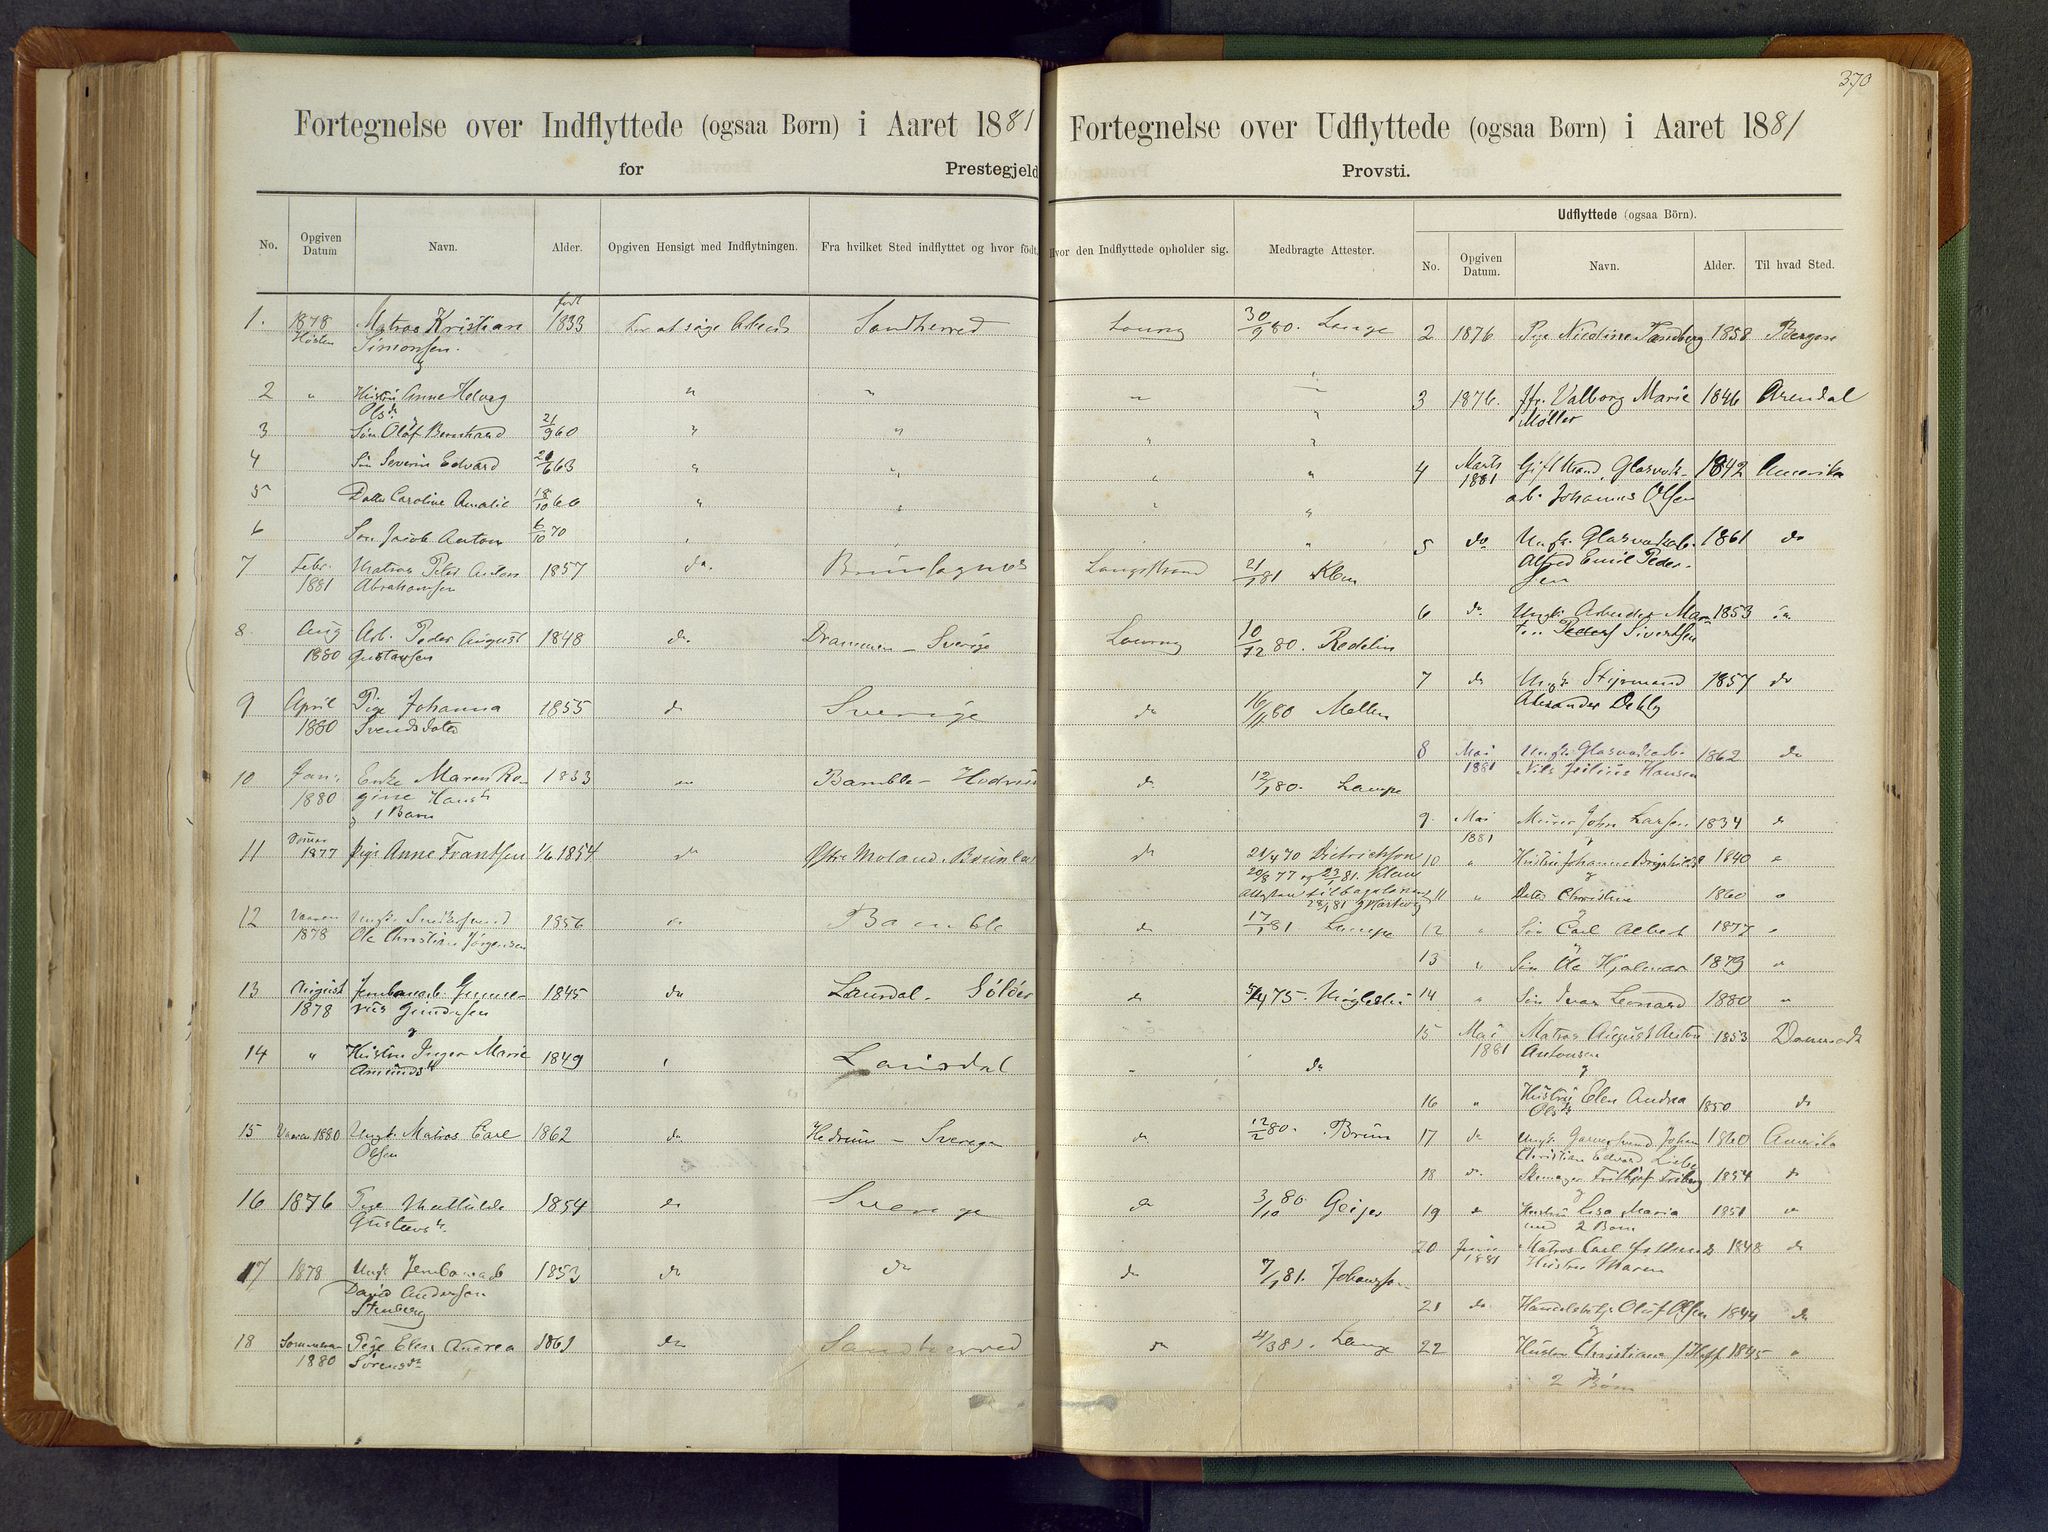 370
Fortegnelse over Indflyttede (ogsaa Børn) i Aaret 1881
for Prestegjeld
No. Opgiven Datum Navn. Alder. Opgiven Hensigt med Indflytningen. Fra hvilket Sted indflyttet og hvor født.
1. 1878 Matros Kristian født 1833 For at søge Arbeide Sandherred
Høsten Simonsen
2 " Hustru Anne Helvag " "
Olsd.
3 Søn Olaf Bernhard 21/9 60 " "
4 Søn Severin Edvard 20/6 63 " "
5 Datter Caroline Amalie 18/10 66 " "
6 Søn Jacob Anton 6/10 70 " "
7 Febr. Matros Peter Anders 1857 do. Brunlagnes
1881 Abrahamsen
8. Aug Arb. Peder August 1848 do. Drammen - Sverige
1880 Gustavsen
9 April Pige Johanna 1855 do Sverige
1880 Svendsdater
10 Jan. Enke Maren Ro- 1833 Bamble - Hedrum
1880 gine Hansd.
1 Barn
11 1877 Pige Anne Frantsen 1/6 1854 do Østre Moland. Brunla
12 Vaaren Ungk. 1856 Bamble
1878 Ole Christian Jørgensen
13 August Jernbanearb. Gunne- 1845 do Laurdal.
1878 rius Gundersen
14 " Hustru Inger Marie 1849 Laurdal
Amundsd.
15 Vaaren 1880 Ungk. Matros Carl 1862 do Hedrum - Sverige
Olsen
16 1876 Pige Mathilde 1854 do Sverige
Gustavsd.
17 1878 Ungk Jernbanearb 1853 do do
David Anderson
Stenberg
18 Sommeren Pige Elen Andrea 1861 do Sandherred
1880 Sørensdr
Fortegnelse over Udflyttede (ogsaa Børn) i Aaret 1881
Provsti.
Hvor den Indflyttede opholder sig. Medbragte Attester.
Laurvig 30/9 80. Lange
Langestrand 21/1 81 Klem
Laurvig 10/12 80. Redelin
do 16/11 80 Mellin
do 12/1 80. Lampe
do 21/4 70 Dietrichson
20/8 77 og 23/1 81. Klem
28/1 81 J Hartwig
do 17/1 81 Lampe
do 5/4 75.
" do
do 12/2 80. Brun
do 3/10 80. Geijer
do 7/1 81. Johansson
do 4/3 81. Lange
Udflyttede (ogsaa Börn).
No. Opgiven Datum. Navn. Alder. Til hvad Sted.
2 1876 Pige Nicoline Tandberg 1858 Bergen
3 1876. Jfr. Valborg Marie 1846 Arendal
Møller
4 Marts Gift Mand, Glasværks- 1842 Amerika
1881 arb. Johannes Olsen
5 do Ungk. Glasværksarb. 1861 do
Alfred Emil Peder-
sen
6 do Ungk. Arbeider Mar- 1853 do
tin Peder Sivertsen
7 do Ungk Styrmand 1857 do
Alexander Dekly
8 Mai Ungk. Glasværkarb. 1862 do
1881 Nils Julius Hansen
9. Mai Murer John Larsen 1834 do
1881
10 " Hustru Johanne 1840 "
11 " Dater Christine 1860 "
12 " Søn Carl Albert 1877 "
13 " Søn Ole Hjalmar 1879 "
14 " Søn Ivar Leonard 1880 "
15 Mai Matros August Anton 1853 Danmark
1881 Antonsen
16 " Hustru Elen Andrea 1850 do
Olsdr
17 do Ungk. Garversvend Johan 1860 Amerika
Christian Edvard
18 do. Skomager Fridthjof Friberg 1854 do
19 Hustru Lisa Maria 1851
med 2 Børn
20 Juni Matros Carl 1848 do
1881 Hustru Maren
21 do Handelsbetj. Oluf Olsen 1844 do
22 Hustru Christiane 1845 "
2 Børn